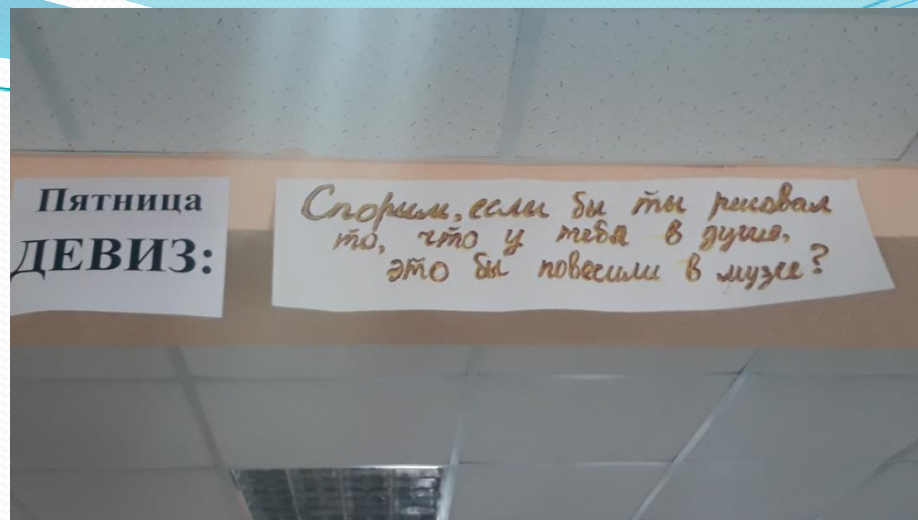 Пятница
ДЕВИЗ:
Спорим, если бы ты рисовал
то, что у тебя в душе,
это бы повесили в музее?